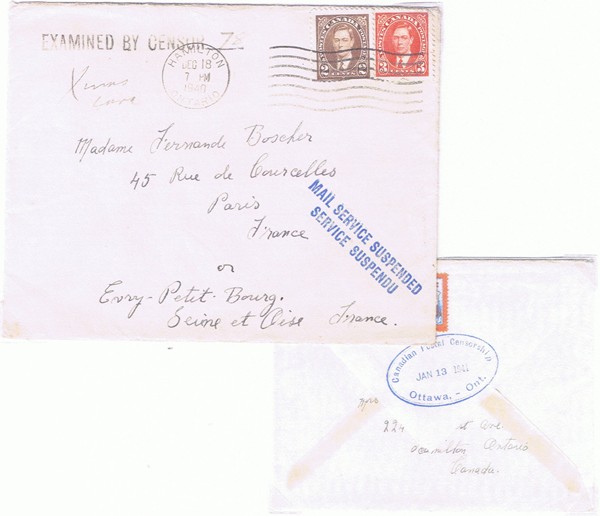 EXAMINED BY CENSOR 78
HAMILTON
DEC 18
7 PM
1940
ONTARIO
CANADA
2 CENTS 2
CANADA
3 CENTS 3
Xmas
card
Madame Fernande Boscher
45 Rue de Courcelles
Paris
France
or
Evry-Petit-Bourg.
Seine et Oise France.
MAIL SERVICE SUSPENDED
SERVICE SUSPENDU
Canadian Postal Censorship
JAN 13 1941
Ottawa, - Ont.
Mrs
224
Hamilton Ontario
Canada.